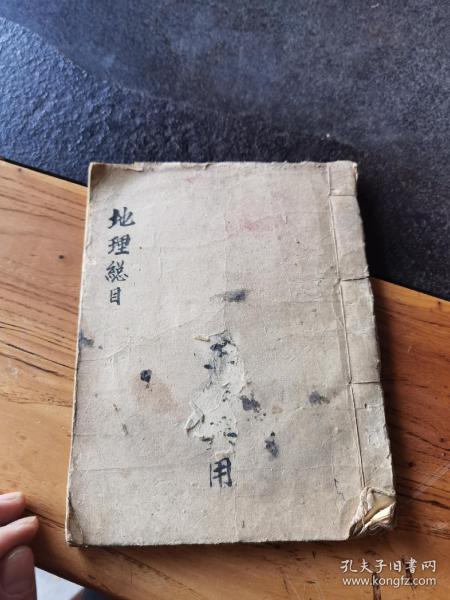 地理緫目
用
孔夫子旧书网
www.kongfz.com